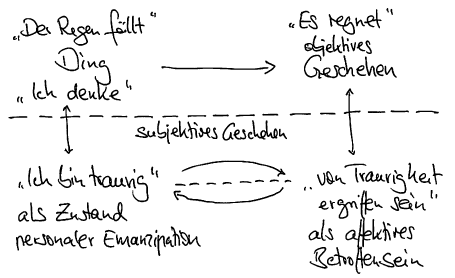 „Der Regen fällt"
Ding
„Ich denke"
„Es regnet"
objektives
Geschehen
subjektives Geschehen
„Ich bin traurig"
als Zustand
personaler Emanzipation
„von Traurigkeit
ergriffen sein"
als affektives
Betroffensein